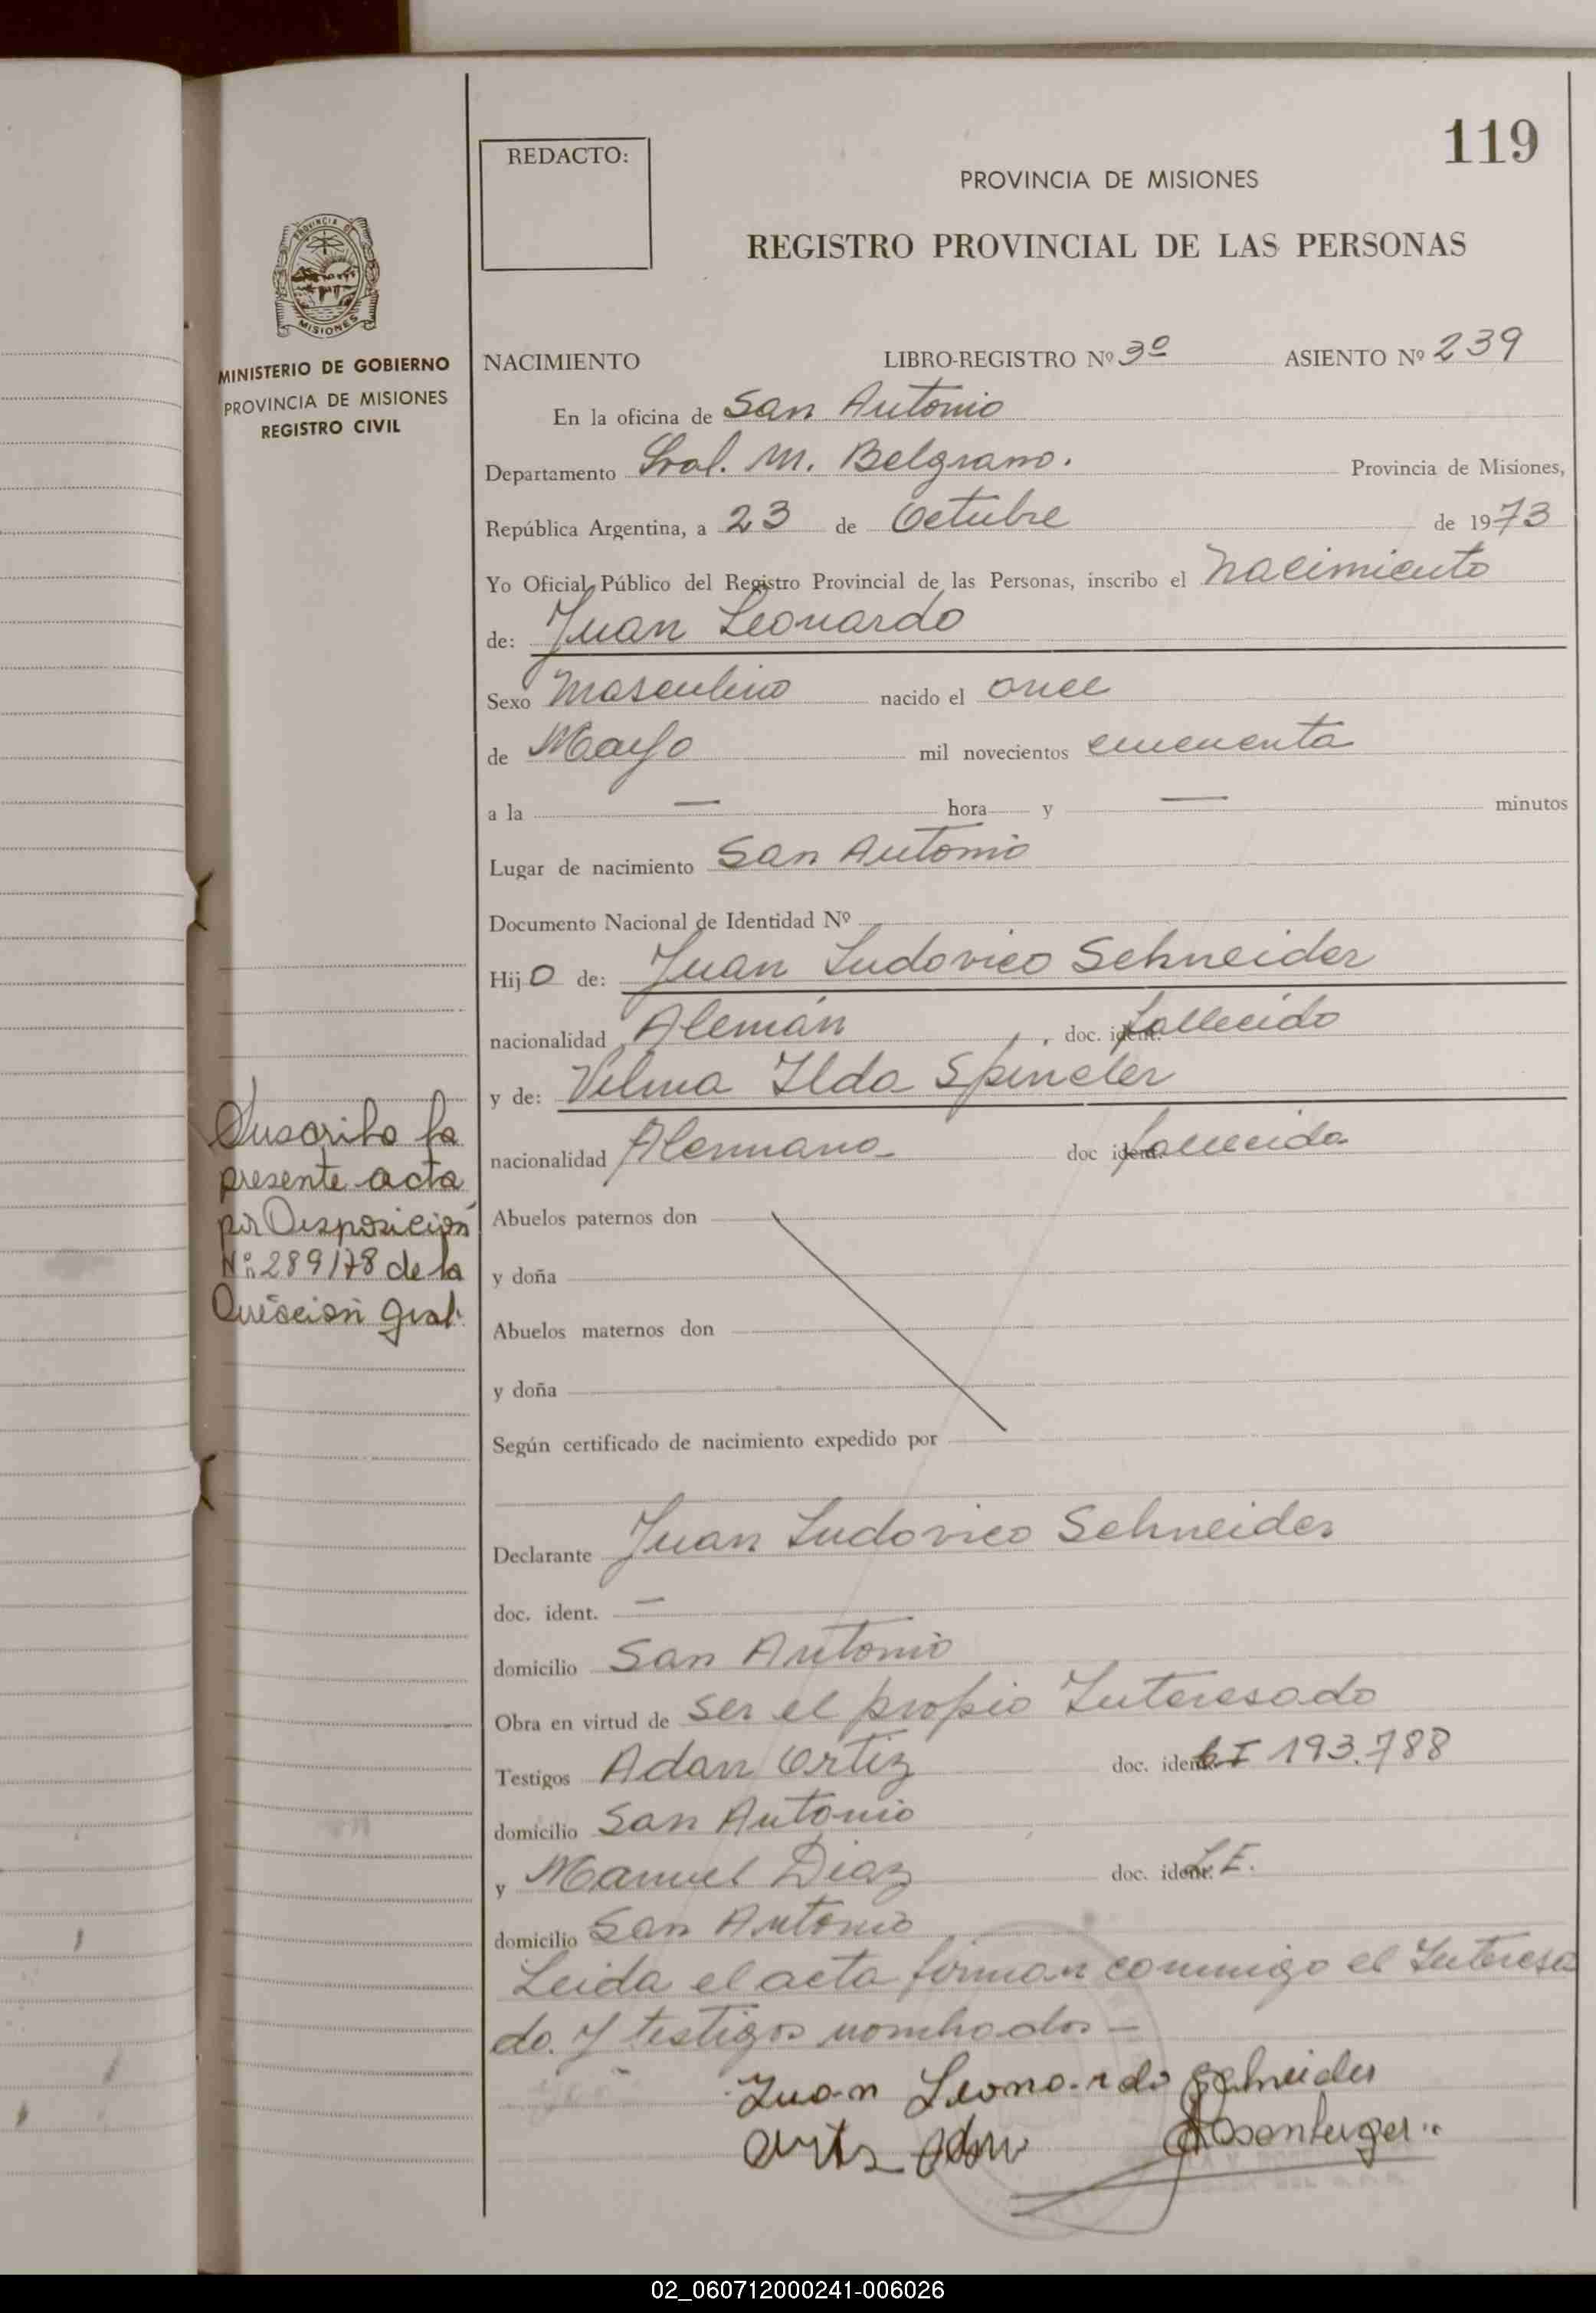 119
REDACTO:
PROVINCIA DE MISIONES
REGISTRO PROVINCIAL DE LAS PERSONAS
PROVINCIA DE
MISIONES
MINISTERIO DE GOBIERNO
PROVINCIA DE MISIONES
REGISTRO CIVIL
NACIMIENTO LIBRO-REGISTRO Nº 3º ASIENTO Nº 239
En la oficina de San Antonio
Departamento Gral. M. Belgrano. Provincia de Misiones,
República Argentina, a 23 de Octubre de 1973
Yo Oficial Público del Registro Provincial de las Personas, inscribo el Nacimiento
de: Juan Leonardo
Sexo Masculino nacido el once
de Mayo mil novecientos cincuenta
a la — hora y — minutos
Lugar de nacimiento San Antonio
Documento Nacional de Identidad Nº
Hijo de: Juan Ludovico Schneider
nacionalidad Alemán, doc. ident. fallecido
y de: Vilma Ilda Spincler
nacionalidad Alemana doc ident. fallecida
Abuelos paternos don
y doña
Abuelos maternos don
y doña
Según certificado de nacimiento expedido por
Declarante Juan Ludovico Schneider
doc. ident. —
domicilio San Antonio
Obra en virtud de ser el propio Interesado
Testigos Adan Ortiz doc. ident. 193.788
domicilio San Antonio
y Manuel Diaz doc. ident. L.E.
domicilio San Antonio
Leida el acta firman conmigo el Interesa
do. y testigos nombrados —
Juan Leonardo Schneider
Ortiz Adan Rosenberger
Suscribo la
presente acta
por Disposición
Nº: 289/78 de la
Dirección Gral.
02_060712000241-006026